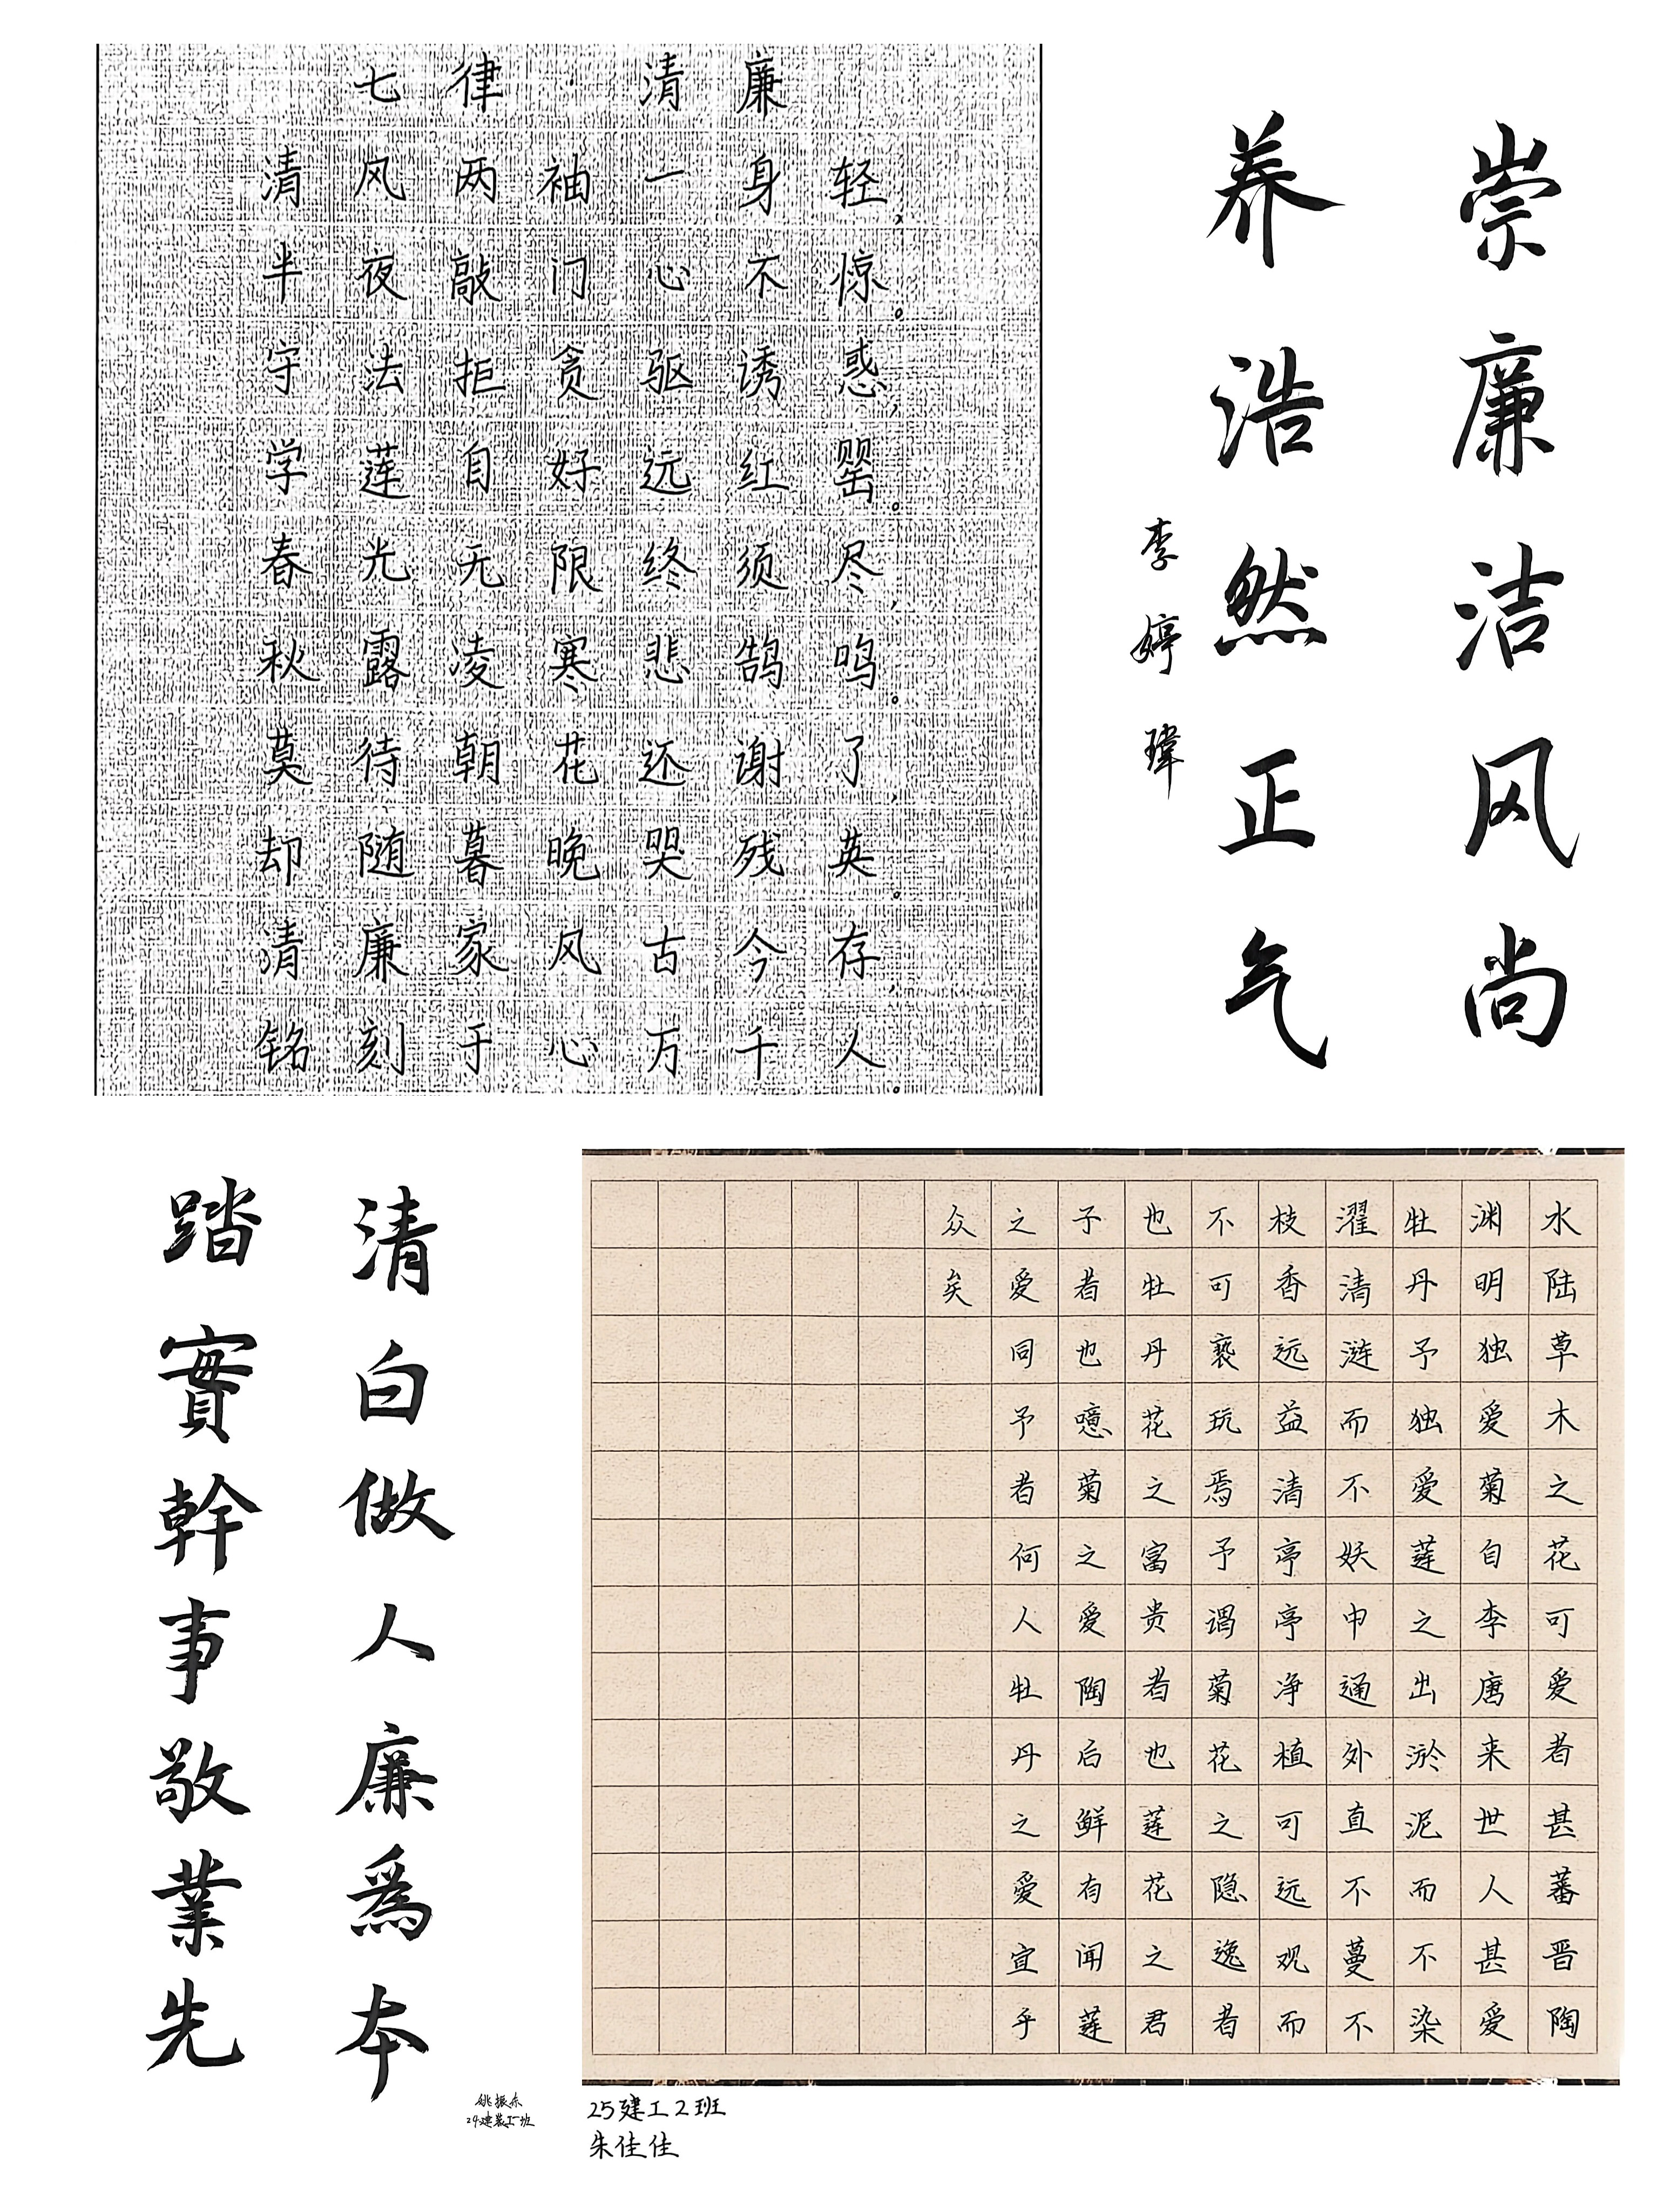 七律·清廉
清风两袖一身轻，
半夜敲门心不惊。
守法拒贪驱诱惑，
学莲自好远红罂。
春光无限终须尽，
秋露凌寒悲鹄鸣。
莫待朝花还谢了，
却随暮晚哭残英。
清廉家风古今存，
铭刻于心万千人。
崇廉洁风尚
养浩然正气
李婷瑋
清白做人廉爲本
踏實幹事敬業先
姚振东
24建装工一班
水陆草木之花可爱者甚蕃晋陶
渊明独爱菊自李唐来世人甚爱
牡丹予独爱莲之出淤泥而不染
濯清涟而不妖中通外直不蔓不
枝香远益清亭亭净植可远观而
不可亵玩焉予谓菊花之隐逸者
也牡丹花之富贵者也莲花之君
子者也噫菊之爱陶后鲜有闻莲
之爱同予者何人牡丹之爱宜乎
众矣
25建工2班
朱佳佳